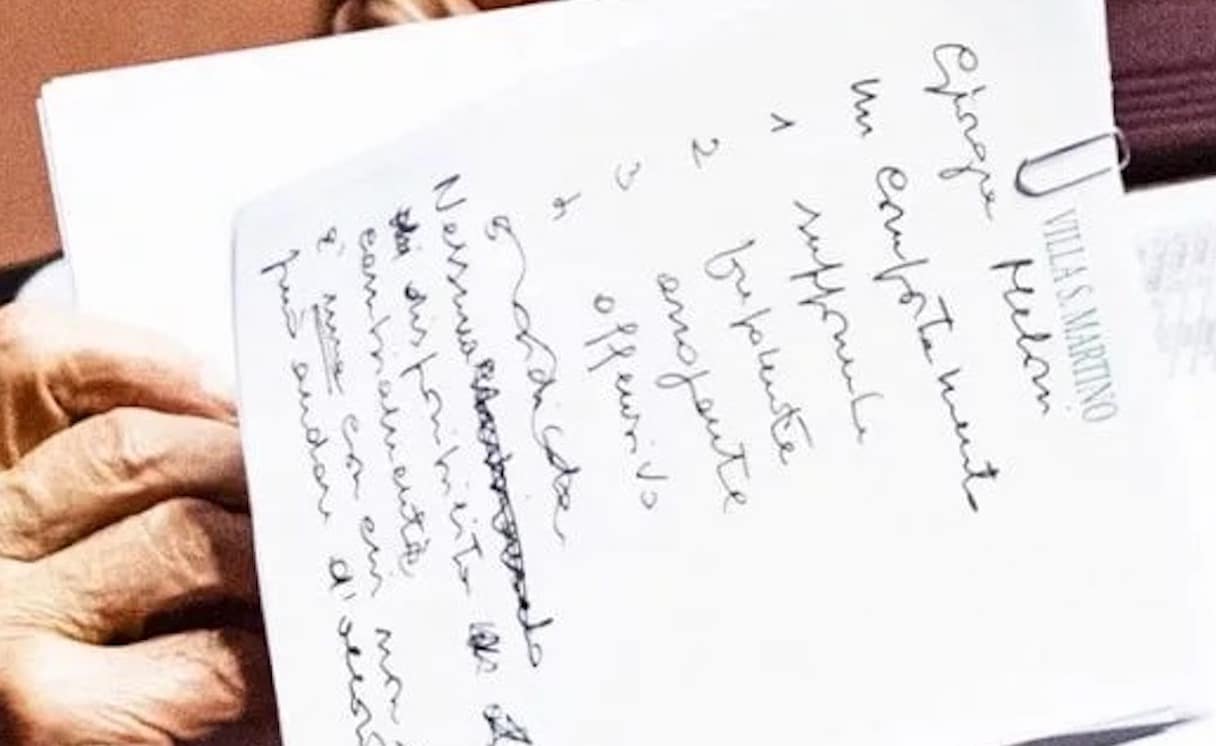 VILLA S. MARTINO
Giorgia Meloni
Un comportamento
1 supponente
2 prepotente
3 arrogante
4 offensivo
Nessuna
disponibilità ai
cambiamenti
è una con cui non
può andar d'accor